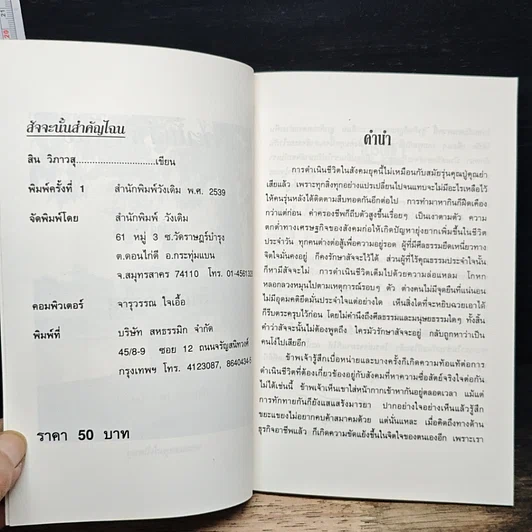 สัจจะนั้นสำคัญไฉน
สิน วิภาวสุ..........................เขียน
พิมพ์ครั้งที่ 1 สำนักพิมพ์วังเดิม พ.ศ. 2539
จัดพิมพ์โดย สำนักพิมพ์ วังเดิม
61 หมู่ 3 ซ.วัดราษฎร์บำรุง
ต.ดอนไก่ดี อ.กระทุ่มแบน
จ.สมุทรสาคร 74110 โทร. 01-456133
คอมพิวเตอร์ จารุวรรณ ใจเอื้อ
พิมพ์ที่ บริษัท สหธรรมิก จำกัด
45/8-9 ซอย 12 ถนนจรัญสนิทวงศ์
กรุงเทพฯ โทร. 4123087, 8640434-5
ราคา 50 บาท
คำนำ
การดำเนินชีวิตในสังคมยุคนี้ไม่เหมือนกับสมัยรุ่นคุณปู่คุณย่า
เสียแล้ว เพราะทุกสิ่งทุกอย่างแปรเปลี่ยนไปจนแทบจะไม่มีอะไรเหลือไว้
ให้คนรุ่นหลังได้ติดตามสืบทอดกันอีกต่อไป การทำมาหากินก็ฝืดเคือง
กว่าแต่ก่อน ค่าครองชีพก็ถีบตัวสูงขึ้นเรื่อยๆ เป็นเงาตามตัว ความ
ตกต่ำทางเศรษฐกิจของสังคมก่อให้เกิดปัญหายุ่งยากเพิ่มขึ้นในชีวิต
ประจำวัน ทุกคนต่างต่อสู้เพื่อความอยู่รอด ผู้ที่มีศีลธรรมยึดเหนี่ยวทาง
จิตใจมั่นคงอยู่ ก็คงรักษาสัจจะไว้ได้ ส่วนผู้ที่ไร้คุณธรรมประจำใจนั้น
ก็หามีสัจจะไม่ การดำเนินชีวิตเต็มไปด้วยความล่อแหลม โกหก
หลอกลวงหมุนไปตามเหตุการณ์รอบๆ ตัว ต่างคนไม่มีจุดยืนที่แน่นอน
ไม่มีอุดมคติยึดมั่นประจำใจแต่อย่างใด เห็นสิ่งใดที่จะหยิบฉวยเอาได้
ก็รีบตระครุบไว้ก่อน โดยไม่คำนึงถึงศีลธรรมและมนุษยธรรมใดๆ ทั้งสิ้น
คำว่าสัจจะนั้นไม่ต้องพูดถึง ใครมัวรักษาสัจจะอยู่ กลับถูกหาว่าเป็น
คนโง่ไปเสียอีก
ข้าพเจ้ารู้สึกเบื่อหน่ายและบางครั้งก็เกิดความท้อแท้ต่อการ
ดำเนินชีวิตที่ต้องเกี่ยวข้องอยู่กับสังคมที่หาความซื่อสัตย์จริงใจต่อกัน
ไม่ได้เช่นนี้ ข้าพเจ้าเห็นเขาใส่หน้ากากเข้าหากันอยู่ตลอดเวลา แม้แต่
การทักทายกันก็ยังแสแสร้งมารยา ปากอย่างใจอย่างเห็นแล้วรู้สึก
ขยะแขยงไม่อยากคบค้าสมาคมด้วย แต่นั่นแหละ เมื่อคิดถึงทางด้าน
ธุรกิจอาชีพแล้ว ก็เกิดความขัดแย้งขึ้นในจิตใจของตนเองอีก เพราะเรา